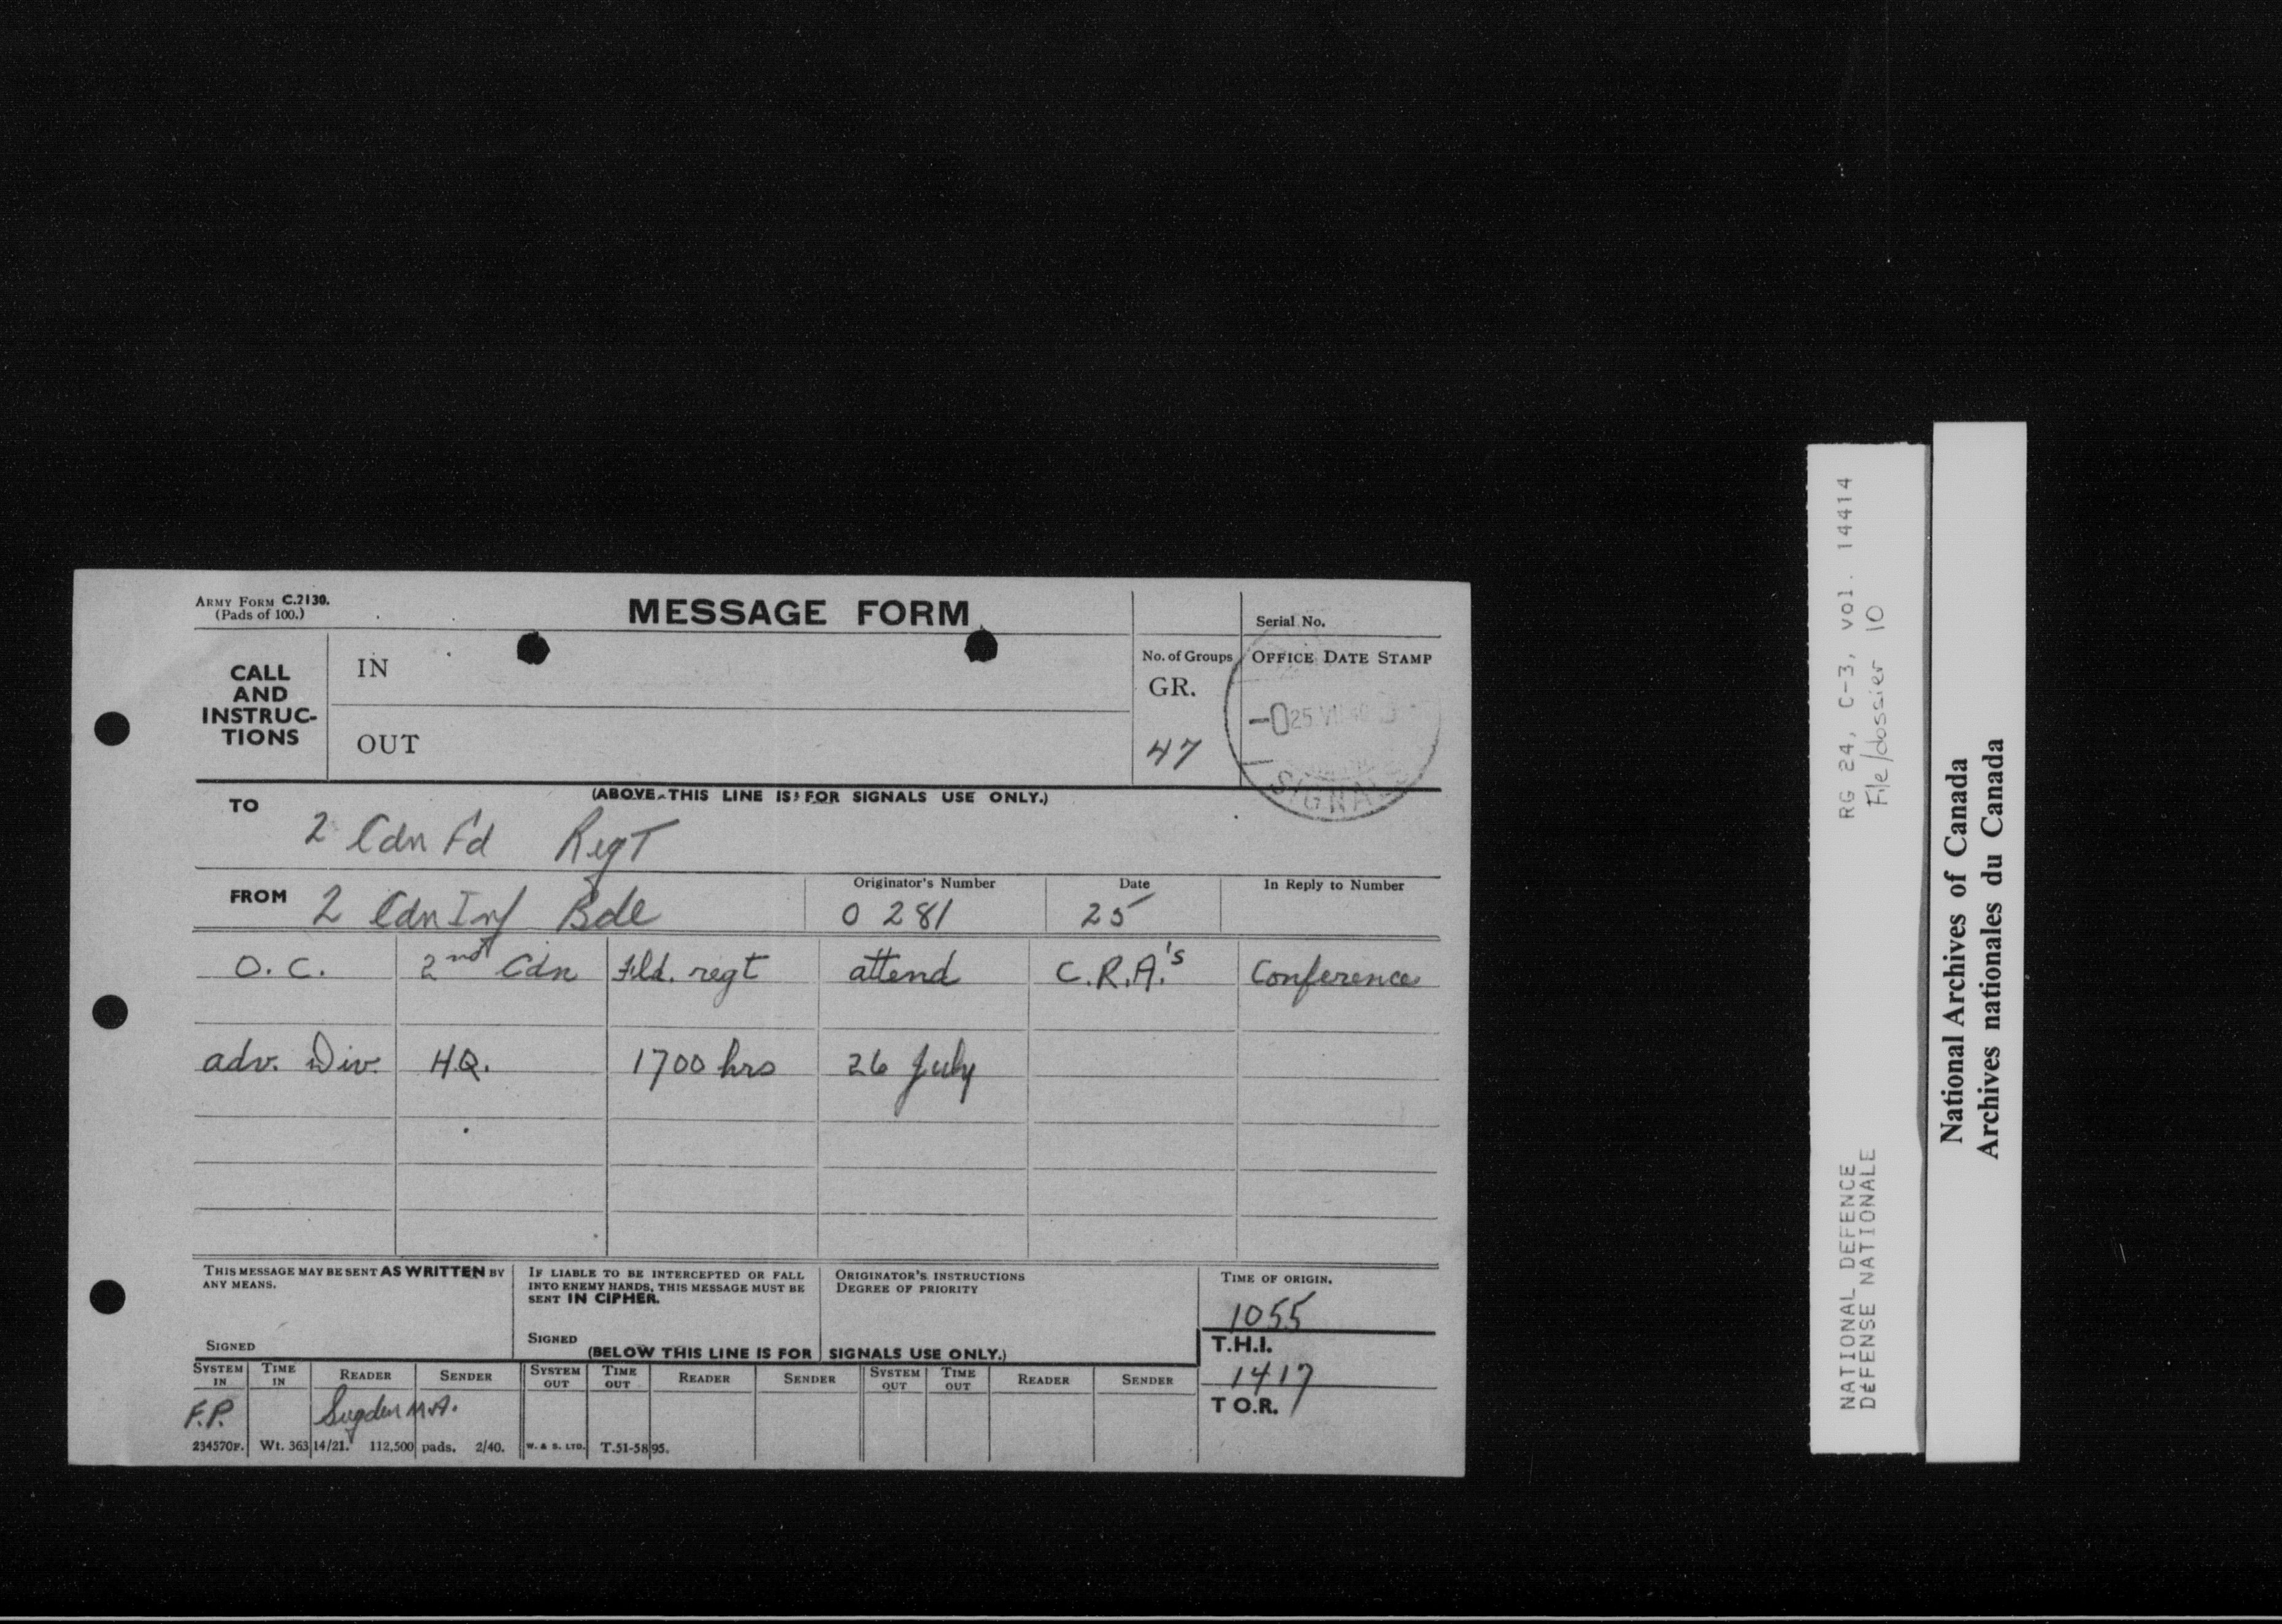 ARMY FORM C.2130.
(Pads of 100.)
MESSAGE FORM
Serial No.
CALL AND INSTRUC-TIONS
IN
OUT
No. of Groups
GR.
47
OFFICE DATE STAMP
25 VII 40
SIGNALS
(ABOVE THIS LINE IS FOR SIGNALS USE ONLY.)
TO
2 Cdn Fd Regt
FROM 2 Cdn Inf Bde
Originator's Number
0 281
Date
25
In Reply to Number
O.C. 2nd Cdn Fld. regt attend C.R.A.'s Conference
adv. Div. H.Q. 1700 hrs 26 July
THIS MESSAGE MAY BE SENT AS WRITTEN BY
ANY MEANS.
SIGNED
IF LIABLE TO BE INTERCEPTED OR FALL
INTO ENEMY HANDS, THIS MESSAGE MUST BE
SENT IN CIPHER.
SIGNED
ORIGINATOR'S INSTRUCTIONS
DEGREE OF PRIORITY
TIME OF ORIGIN.
1055
T.H.I.
1417
T O.R.
(BELOW THIS LINE IS FOR SIGNALS USE ONLY.)
SYSTEM IN TIME IN READER SENDER SYSTEM OUT TIME OUT READER SENDER SYSTEM OUT TIME OUT READER SENDER
F.P. Sugden M.A.
234570F. Wt. 363 14/21. 112,500 pads. 2/40. W. & S. LTD. T.51-5895.
NATIONAL DEFENCE RG 24, C-3, vol. 14414
DÉFENSE NATIONALE File/dossier 10
National Archives of Canada
Archives nationales du Canada